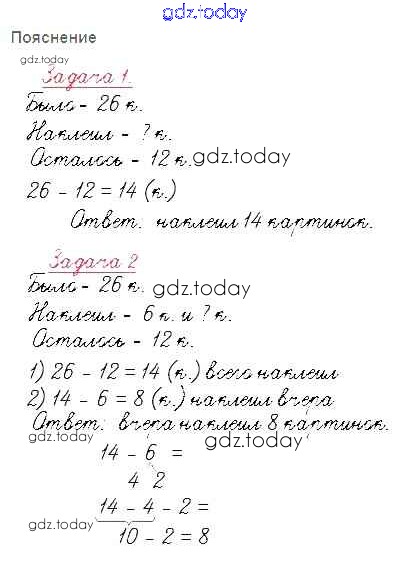 gdz.today
Пояснение
gdz.today
Задача 1.
Было - 26 к.
Наклеил - ? к.
Осталось - 12 к. gdz.today
26 - 12 = 14 (к.)
Ответ: наклеил 14 картинок.
Задача 2
Было - 26 к. gdz.today
Наклеил - 6 к. и ? к.
Осталось - 12 к.
1) 26 - 12 = 14 (к.) всего наклеил
2) 14 - 6 = 8 (к.) наклеил вчера
Ответ: вчера наклеил 8 картинок.
gdz.today 14 - 6 = gdz.today
4 2
14 - 4 - 2 =
gdz.today 10 - 2 = 8